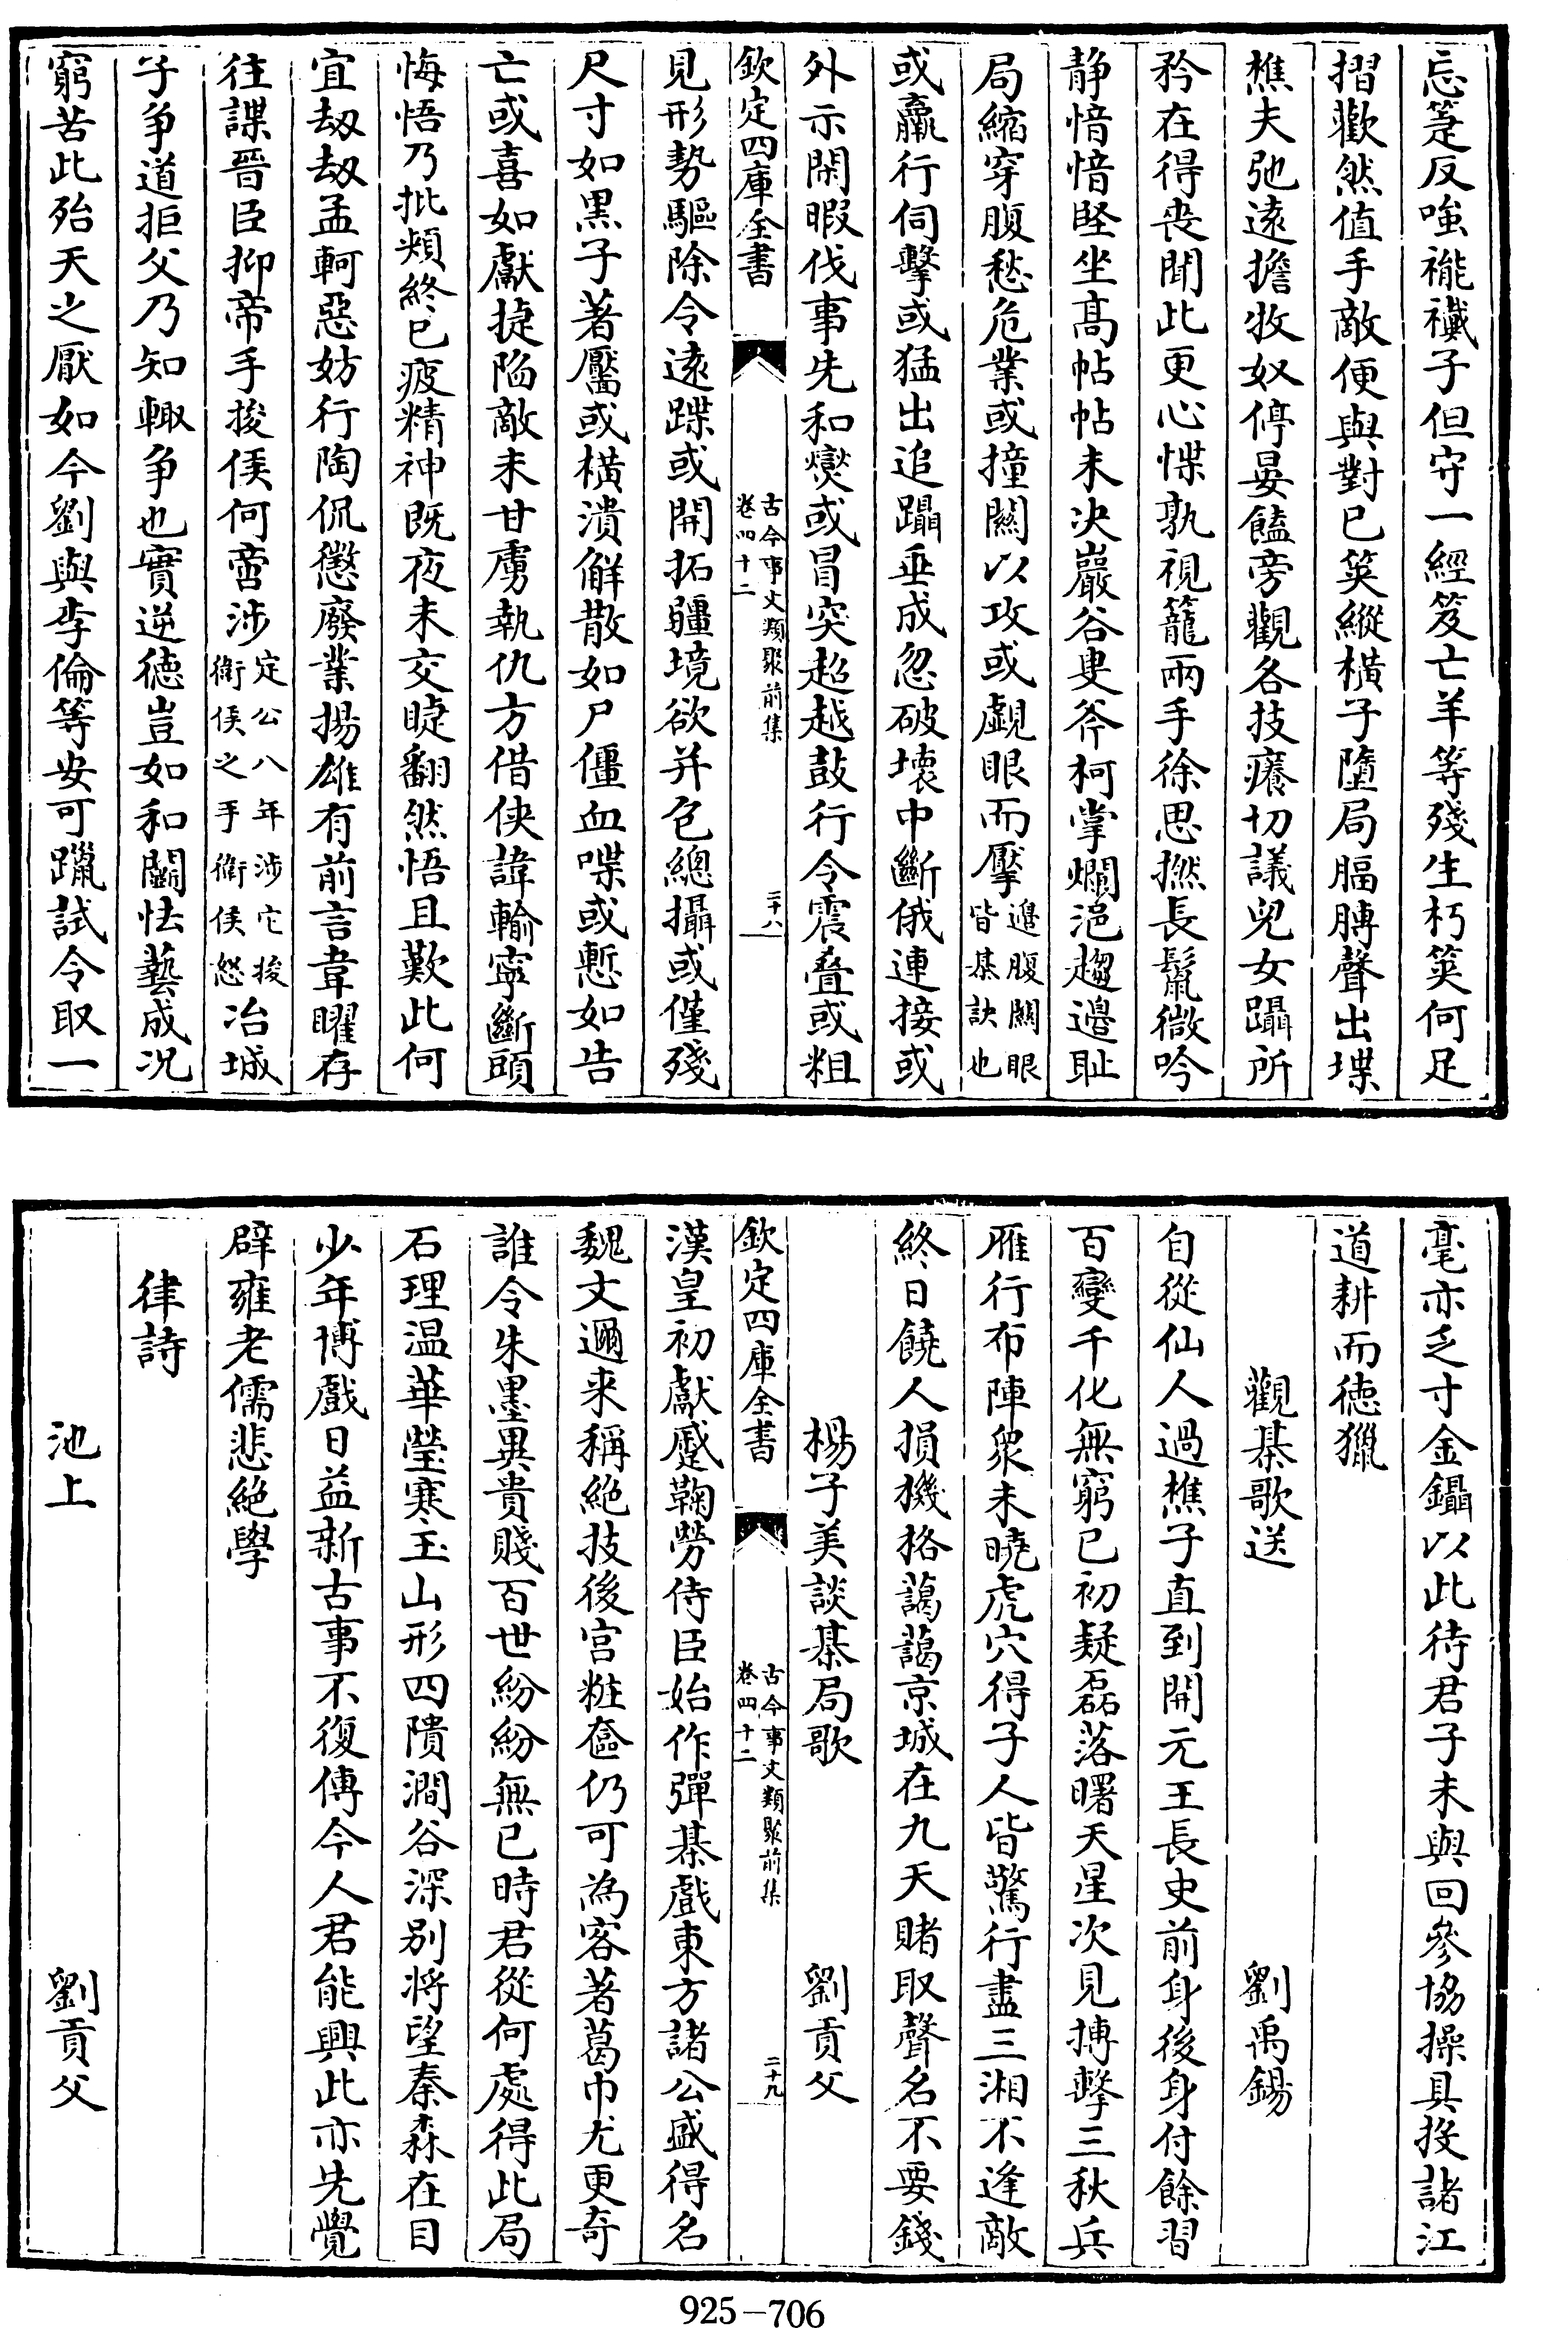 忘箠反嗤褦襶子但守一經笈亡羊等殘生朽筴何足
摺歡然值手敵便與對已筴縱橫子墮局腷膊聲出堞
樵夫弛遠擔牧奴停晏饁旁觀各技癢切議兒女躡所
矜在得喪聞此更心惵孰視籠兩手徐思撚長鬣微吟
静愔愔堅坐髙帖帖未决巖谷叟斧柯掌爛浥趨邉恥
局縮穿腹愁危業或撞關以攻或覷眼而擪邉腹關眼
皆棊訣也
或羸行伺擊或猛出追躡垂成忽破壞中斷俄連接或
外示閑暇伐事先和爕或冒突超越鼓行令震叠或粗
欽定四庫全書
古今事文類聚前集
卷四十二
二十八
見形勢驅除令遠蹀或開拓疆境欲并包總攝或僅殘
尺寸如黒子著靨或横潰解散如尸僵血喋或慙如告
亡或喜如獻捷陷敵未甘虜執仇方借俠諱輸寧斷頭
悔悟乃批頰終已疲精神既夜未交睫翻然悟且歎此何
宜劫劫孟軻惡妨行陶侃懲廢業揚雄有前言韋曜存
往諜晉臣抑帝手捘侯何啻涉定公八年涉它捘
衛侯之手衛侯怒冶城
子争道拒父乃知輙争也實逆徳豈如和鬬怯藝成况
窮苦此殆天之厭如今劉與李倫等安可躐試令取一
毫亦乏寸金鑷以此待君子未與回參協操具投諸江
道耕而徳獵
觀棊歌送 劉禹錫
自從仙人過樵子直到開元王長史前身後身付餘習
百變千化無窮已初疑磊落曙天星次見搏擊三秋兵
雁行布陣衆未曉虎穴得子人皆驚行盡三湘不逢敵
終日饒人損機格藹藹京城在九天賭取聲名不要錢
楊子美談棊局歌 劉貢父
欽定四庫全書
古今事文類聚前集
卷四十二
二十九
漢皇初獻蹙鞠勞侍臣始作彈棊戲東方諸公盛得名
魏文邇来稱絶技後宫粧奩仍可為客著葛巾尤更奇
誰令朱墨異貴賤百世紛紛無已時君從何處得此局
石理温華瑩寒玉山形四隤澗谷深别将望秦森在目
少年博戲日益新古事不復傳今人君能興此亦先覺
辟雍老儒悲絶學
律詩
池上 劉貢父
925-706